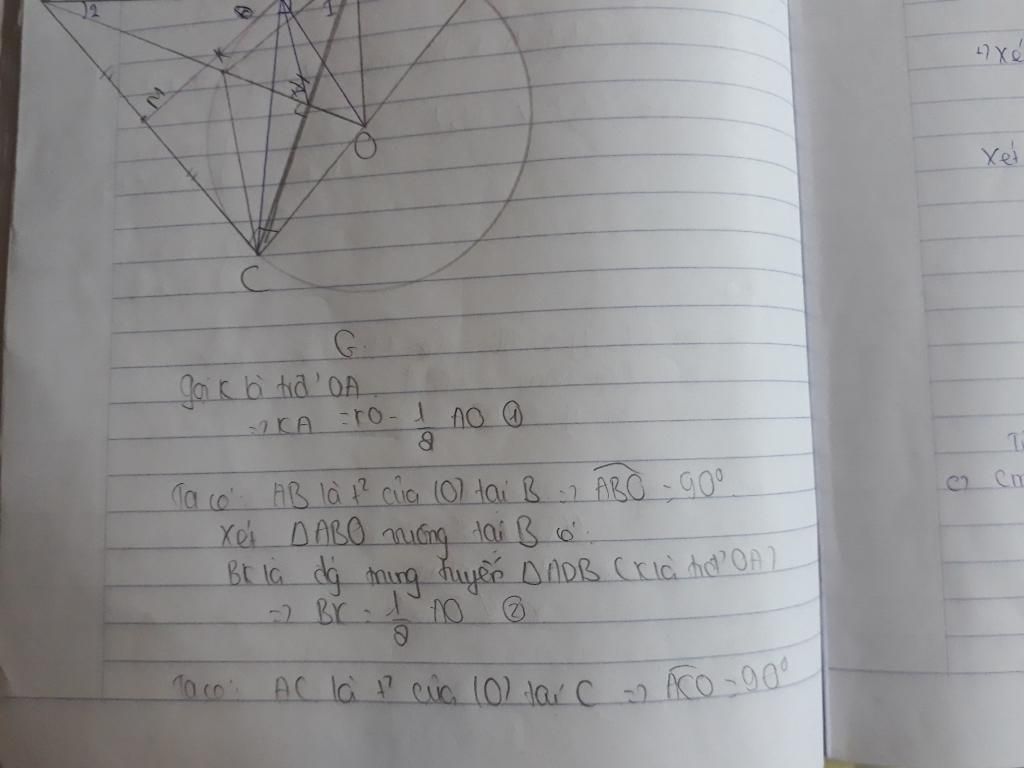 2
K
M
O
C
G.
Gọi K là tđ' OA
=> KA = KO = 1/2 AO ①
Ta có: AB là t² của (O) tại B => ABO = 90°
Xét ΔABO vuông tại B có:
BK là đg trung tuyến ΔAOB (K là tđ' OA)
=> BK = 1/2 AO ②
Ta có: AC là t² của (O) tại C => ACO = 90°
=> Xé
Xét
c) Cm